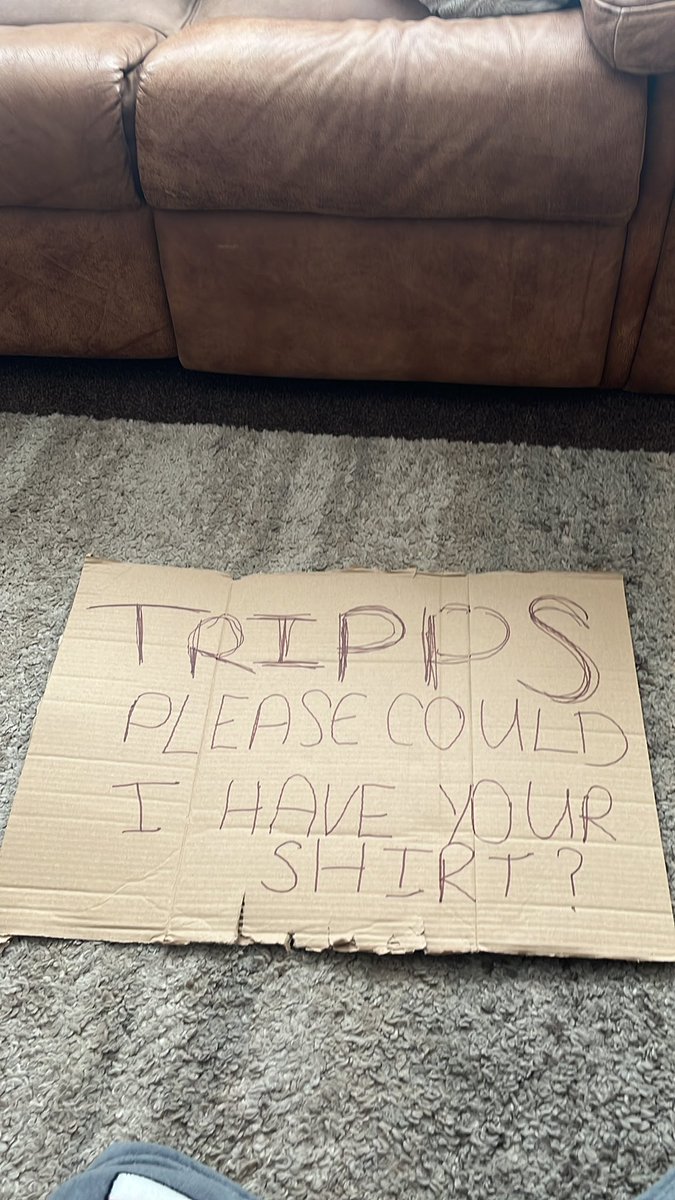 TRIPPS
PLEASE COULD
I HAVE YOUR
SHIRT?